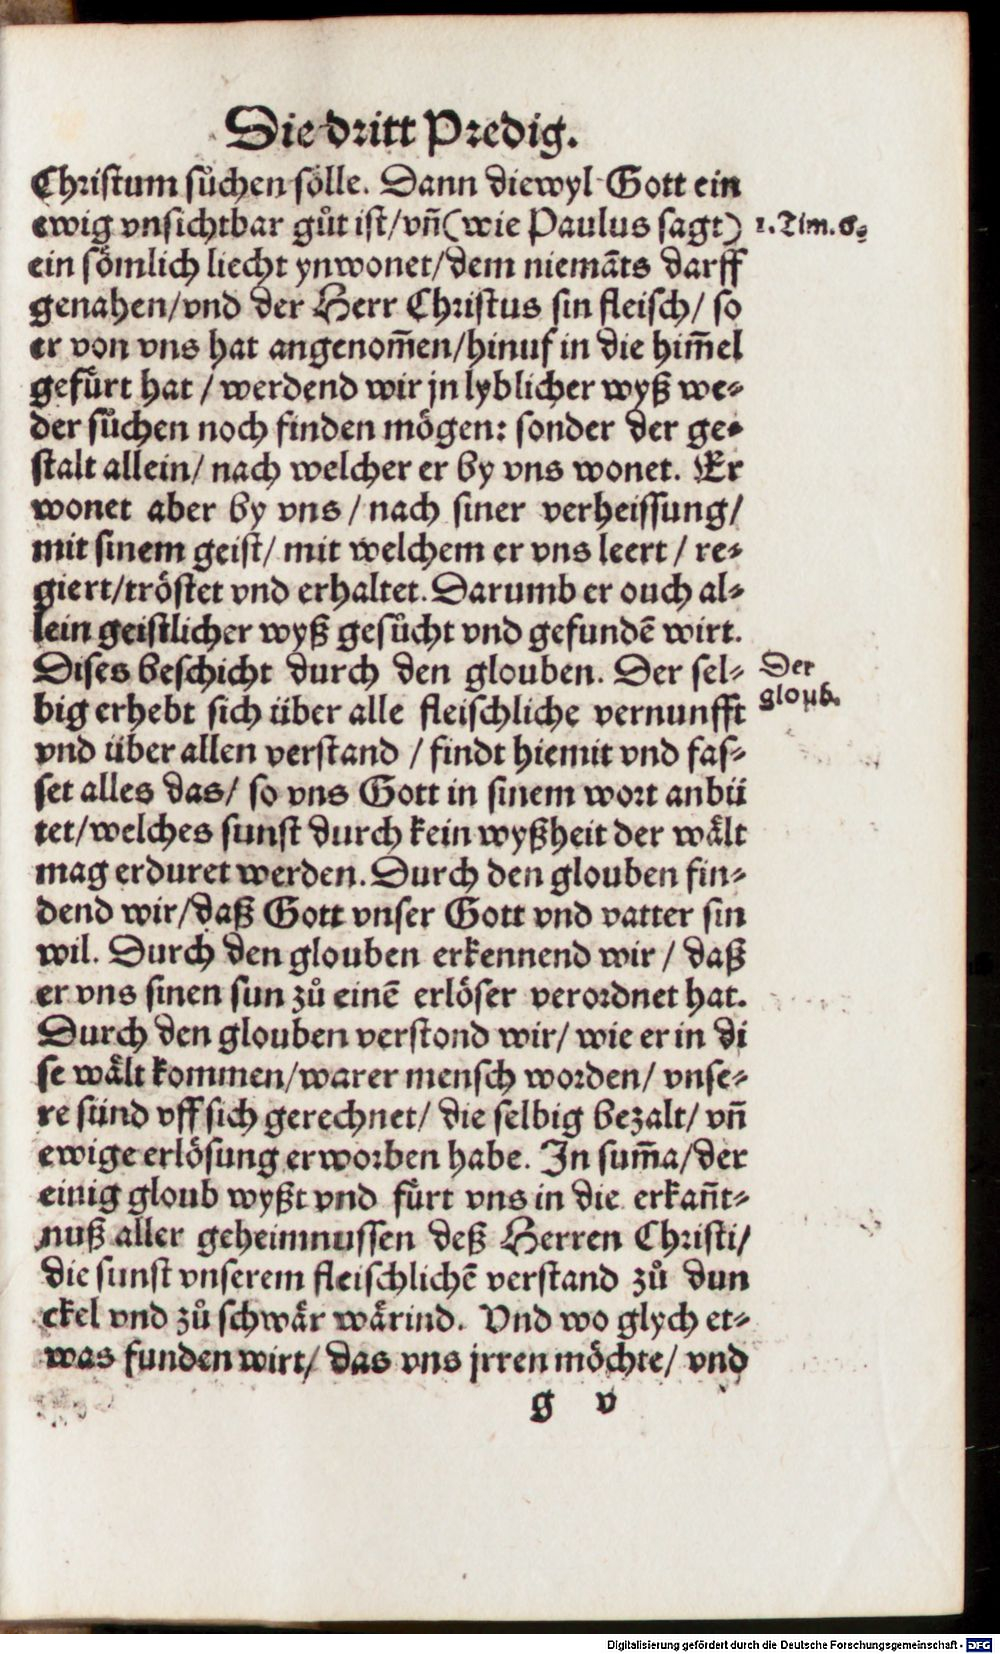 Die dritt Predig.
Christum sůchen sölle. Dann diewyl Gott ein
ewig vnsichtbar gůt ist/ vñ (wie Paulus sagt)
1. Tim. 6.
ein sömlich liecht ynwonet/ dem niemāts darff
genahen/ vnd der Herr Christus sin fleisch/ so
er von vns hat angenom̃en/ hinuf in die him̃el
gefürt hat / werdend wir jn lyblicher wyß we-
der sůchen noch finden mögen: sonder der ge-
stalt allein/ nach welcher er by vns wonet. Er
wonet aber by vns / nach siner verheissung/
mit sinem geist/ mit welchem er vns leert / re-
giert/ tröstet vnd erhaltet. Darumb er ouch al-
lein geistlicher wyß gesůcht vnd gefundē wirt.
Dises beschicht durch den glouben. Der sel-
Der
gloub.
big erhebt sich über alle fleischliche vernunfft
vnd über allen verstand / findt hiemit vnd fas-
set alles das/ so vns Gott in sinem wort anbü
tet/ welches sunst durch kein wyßheit der wält
mag erduret werden. Durch den glouben fin-
dend wir/ daß Gott vnser Gott vnd vatter sin
wil. Durch den glouben erkennend wir / daß
er vns sinen sun zů einē erlöser verordnet hat.
Durch den glouben verstond wir/ wie er in di
se wält kommen/ warer mensch worden/ vnse-
re sünd vff sich gerechnet/ die selbig bezalt/ vñ
ewige erlösung erworben habe. In sum̃a/ der
einig gloub wyßt vnd fürt vns in die erkañt-
nuß aller geheimnussen deß Herren Christi/
die sunst vnserem fleischlichē verstand zů dun
ckel vnd zů schwär wärind. Vnd wo glych et-
was funden wirt/ das vns jrren möchte/ vnd
g v
Digitalisierung gefördert durch die Deutsche Forschungsgemeinschaft - DFG